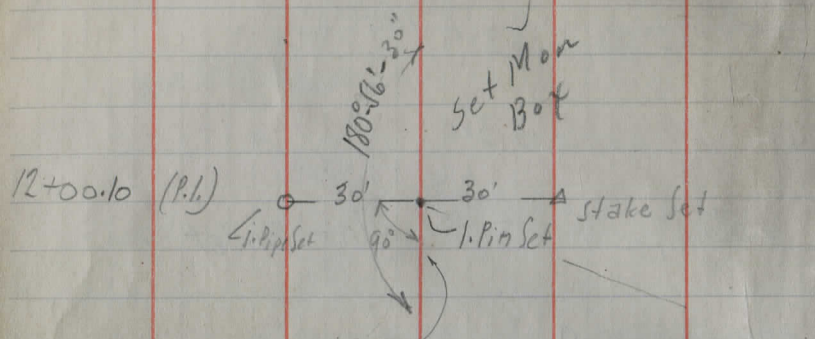 180°56'-30"
Set Mon
Box
12+00.10 (P.I.) 30' 30' Stake Set
I.Pipe Set 90° I.Pin Set